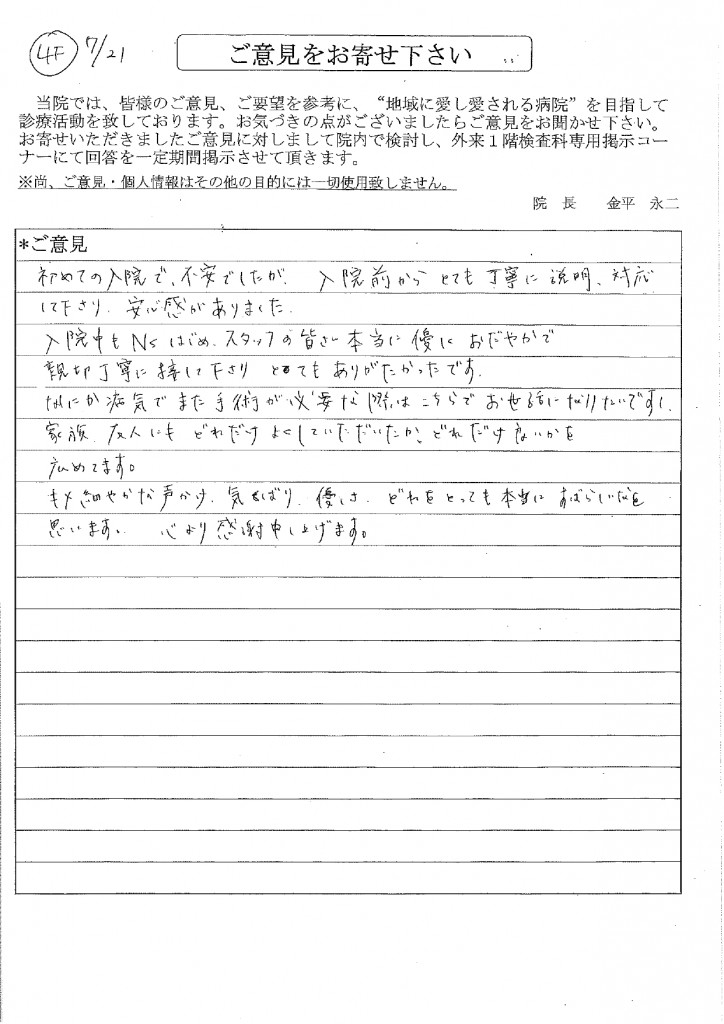 4F 7/21
ご意見をお寄せ下さい
当院では、皆様のご意見、ご要望を参考に、“地域に愛し愛される病院”を目指して
診療活動を致しております。お気づきの点がございましたらご意見をお聞かせ下さい。
お寄せいただきましたご意見に対しまして院内で検討し、外来1階検査科専用掲示コー
ナーにて回答を一定期間掲示させて頂きます。
※尚、ご意見・個人情報はその他の目的には一切使用致しません。
院 長 金平 永二
*ご意見
初めての入院で、不安でしたが、入院前から とても丁寧に説明、対応
して下さり、安心感がありました。
入院中も Nsはじめ、スタッフの皆さん本当に優しく おだやかで
親切丁寧に接して下さり とてもありがたかったです。
なにか病気でまた手術が必要な際は こちらで お世話になりたいですし、
家族、友人にも どれだけよくしていただいたか、どれだけ良いかを
広めてます。
キメ細やかな声かけ、気くばり、優しさ、どれをとっても本当に すばらしいなと
思います。 心より感謝申し上げます。